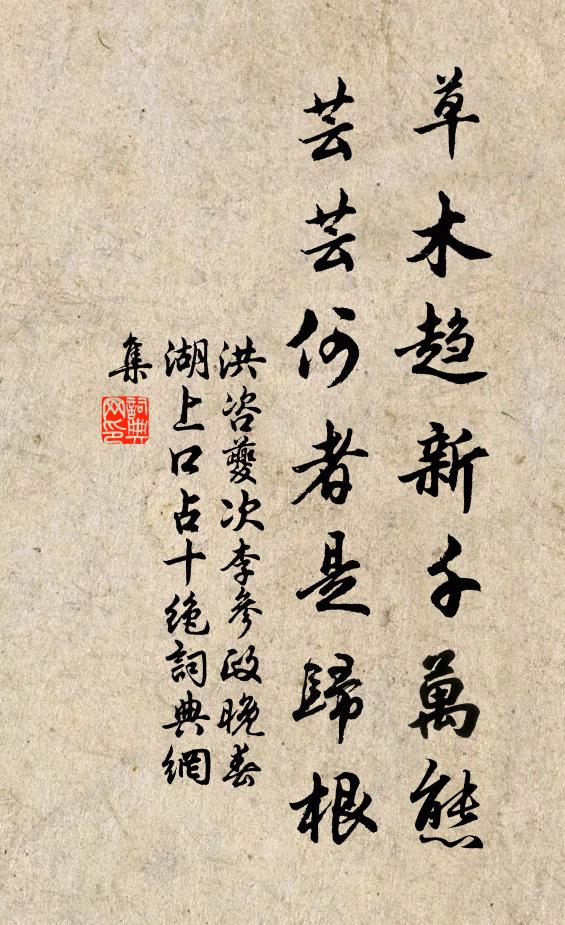 草木趋新千萬態
芸芸何者是歸根
洪咨夔次李參政晚春
湖上口占十絕詞典網
集
詞典網印